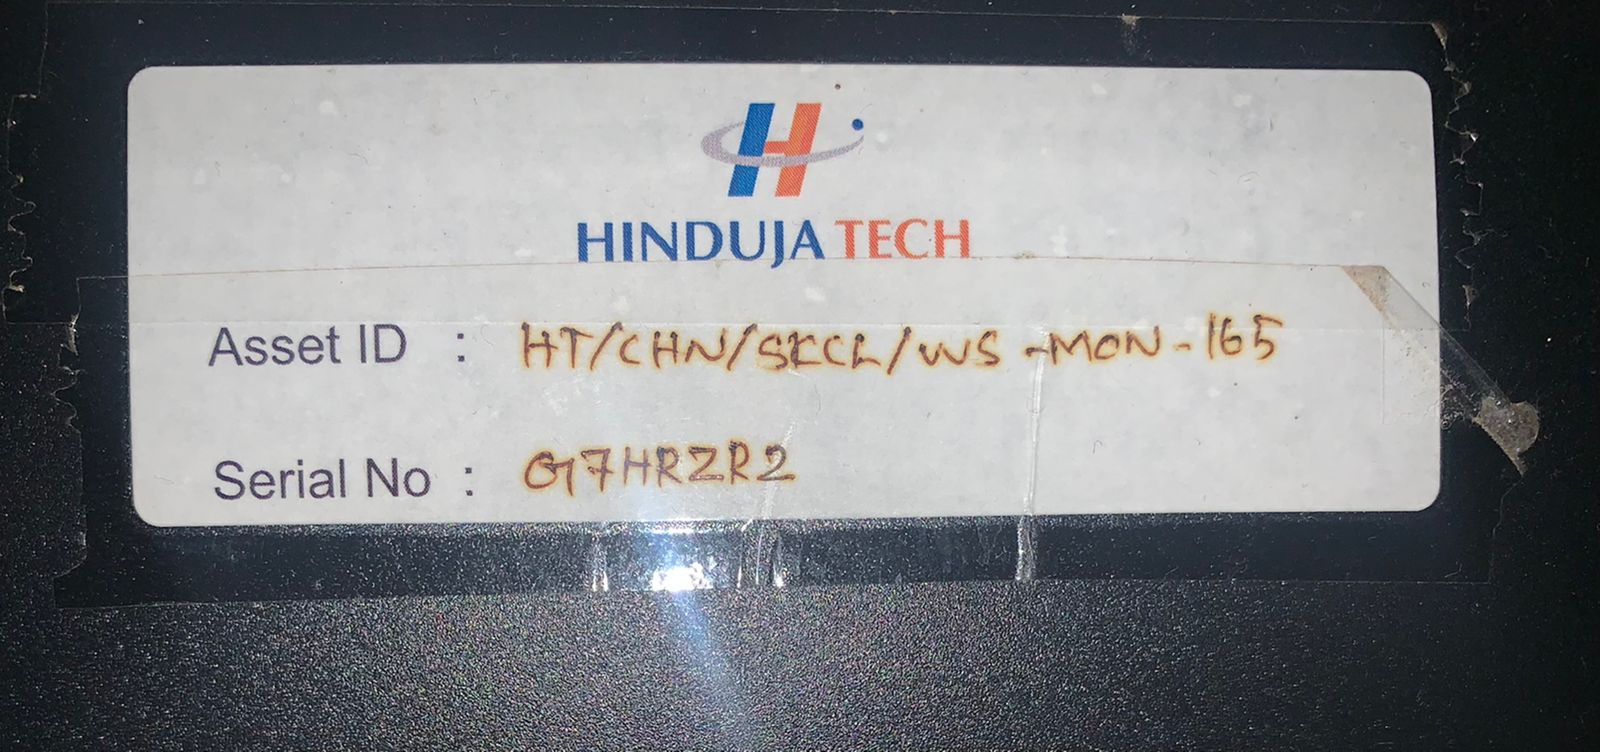 HINDUJA TECH
Asset ID : HT/CHN/SKCL/WS-MON-165
Serial No : G7HRZR2